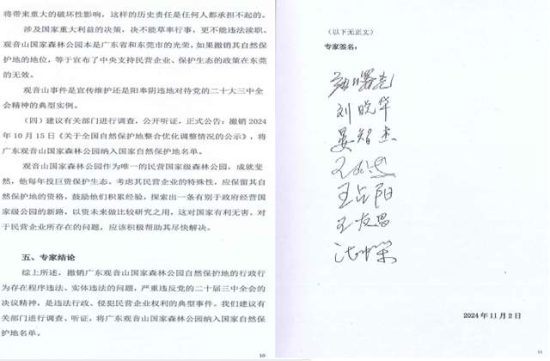 将带来重大的破坏性影响，这样的历史责任是任何人都承担不起的。
涉及国家重大利益的决策，决不能草率行事，更不能违法渎职。
观音山国家森林公园本是广东省和东莞市的光荣，如果撤销其自然保
护地的地位，等于宣布了中央支持民营企业、保护生态的政策在东莞
的无效。
观音山事件是宣传维护还是阳奉阴违地对待党的二十大三中全
会精神的典型实例。
（四）建议有关部门进行调查，公开听证，正式公告：撤销 2024
年 10 月 15 日《关于全国自然保护地整合优化调整情况的公示》，将
广东观音山国家森林公园纳入国家自然保护地名单。
观音山国家森林公园作为唯一的民营国家级森林公园，成就斐
然，他每年投巨资保护生态，考虑其民营企业的特殊性，应保留其自
然保护地的资格，鼓励他们积累经验，探索出一条有别于政府经营国
家级公园的新路，以资未来做比较研究之用，这对国家有利无害，对
于民营企业所存在的问题，应该积极帮助其尽快解决。
五、专家结论
综上所述，撤销广东观音山国家森林公园自然保护地的行政行
为存在程序违法、实体违法的问题，严重违反党的二十届三中全会的
决议精神，是违法行政、侵犯民营企业权利的典型事件。我们建议有
关部门进行调查、听证，将广东观音山国家森林公园纳入国家自然保
护地名单。
10
（以下无正文）
专家签名：
刘晓华
晏智杰
王占阳
王友昌
2024 年 11 月 2 日
11